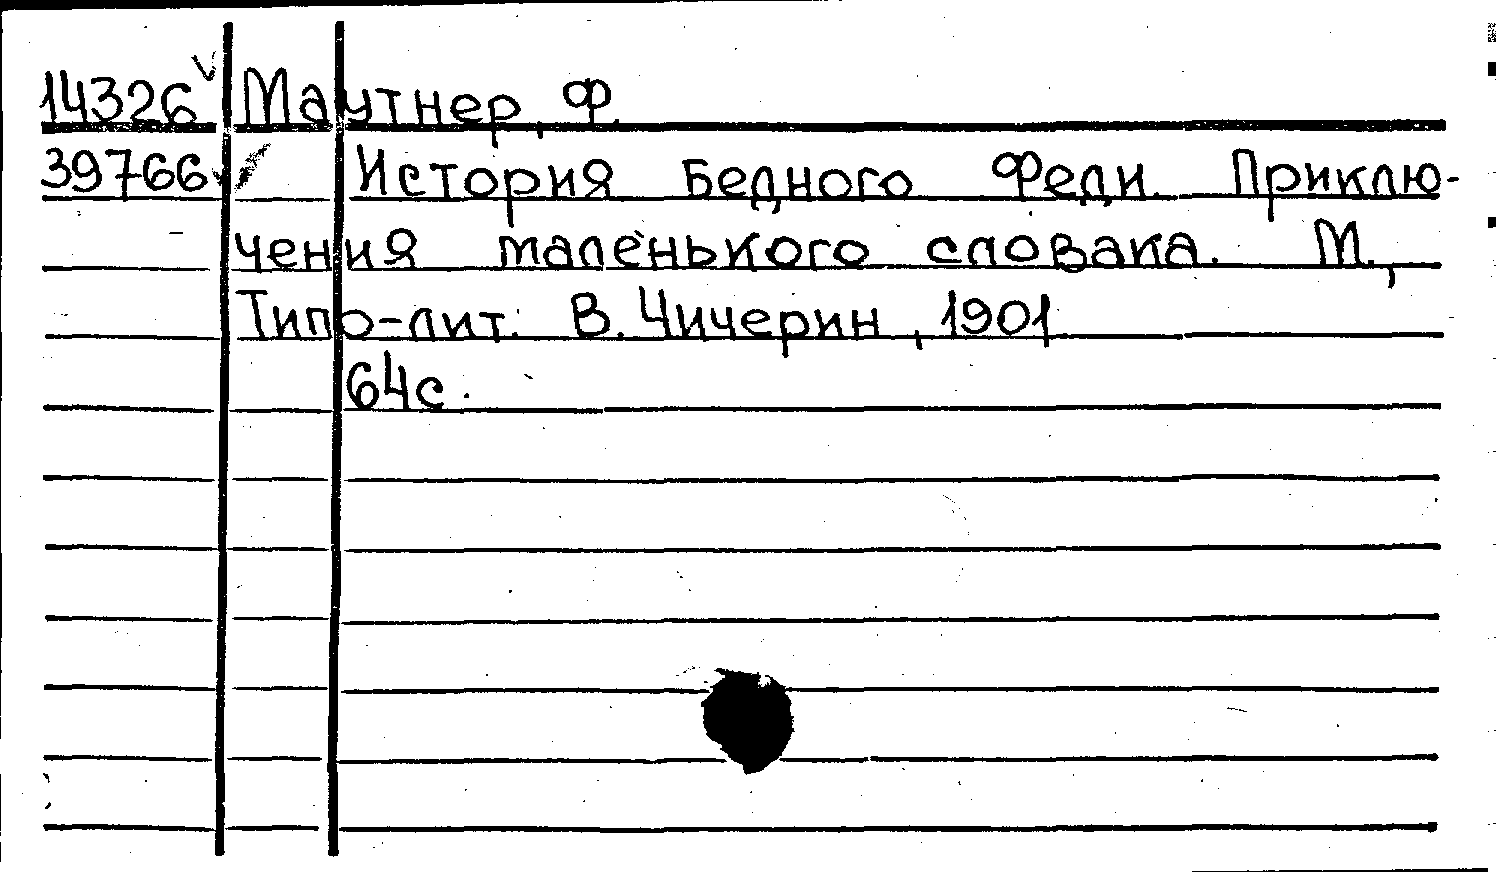 14326 Маутнер, Ф.
39766 История Бедного Феди. Приклю-
чения маленького словака. М.,
Типо-лит. В. Чичерин, 1901
64с.